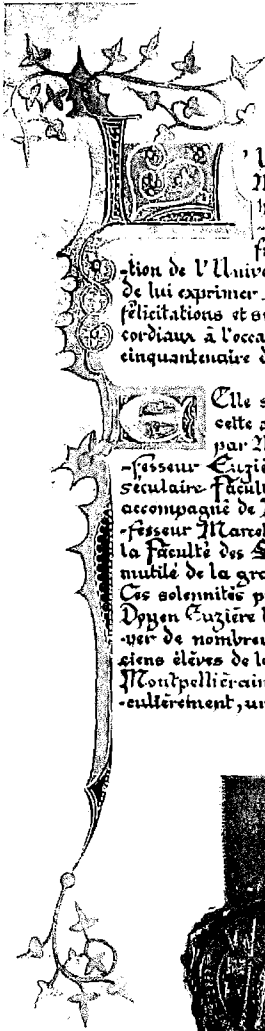 L'U
-tion de l'Unive
de lui exprimer
félicitations et s
cordiaux à l'occa
cinquantenaire d
Elle s
cette
par M
-fesseur Euzièr
séculaire Facul
accompagné de
-fesseur Marcel
la Faculté des S
mutilé de la gra
Ces solennités p
Doyen Euzière l
-yer de nombreu
ciens élèves de l
Montpelliérain
-culièrement, un